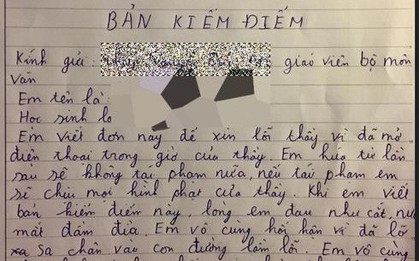 BẢN KIỂM ĐIỂM
Kính gửi: giáo viên bộ môn
Văn
Em tên là
Học sinh lớ
Em viết đơn này để xin lỗi thầy vì đã mở
điện thoại trong giờ của thầy. Em hứa từ lần
sau sẽ không tái phạm nữa, nếu tái phạm em
sẽ chịu mọi hình phạt của thầy. Khi em viết
bản kiểm điểm này, lòng em đau như cắt, nước
mắt đầm đìa. Em vô cùng hối hận vì đã lỡ
xa Sa chân vào con đường lầm lỗi. Em vô cùng